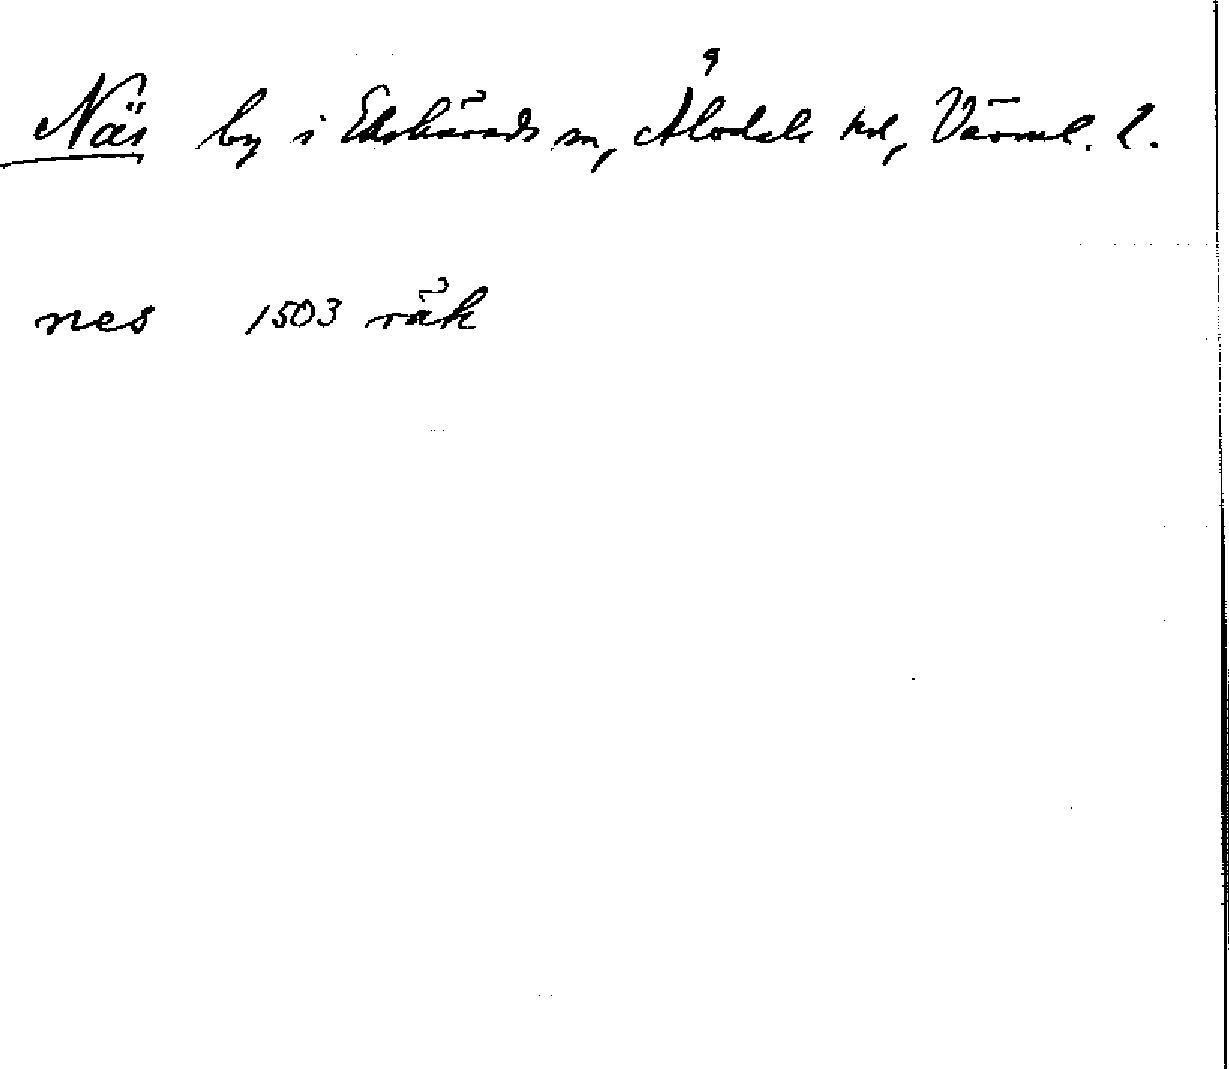 Näs by i Ekshärads sn, Älvdals hd, Värml. l.
nes 1503 räk